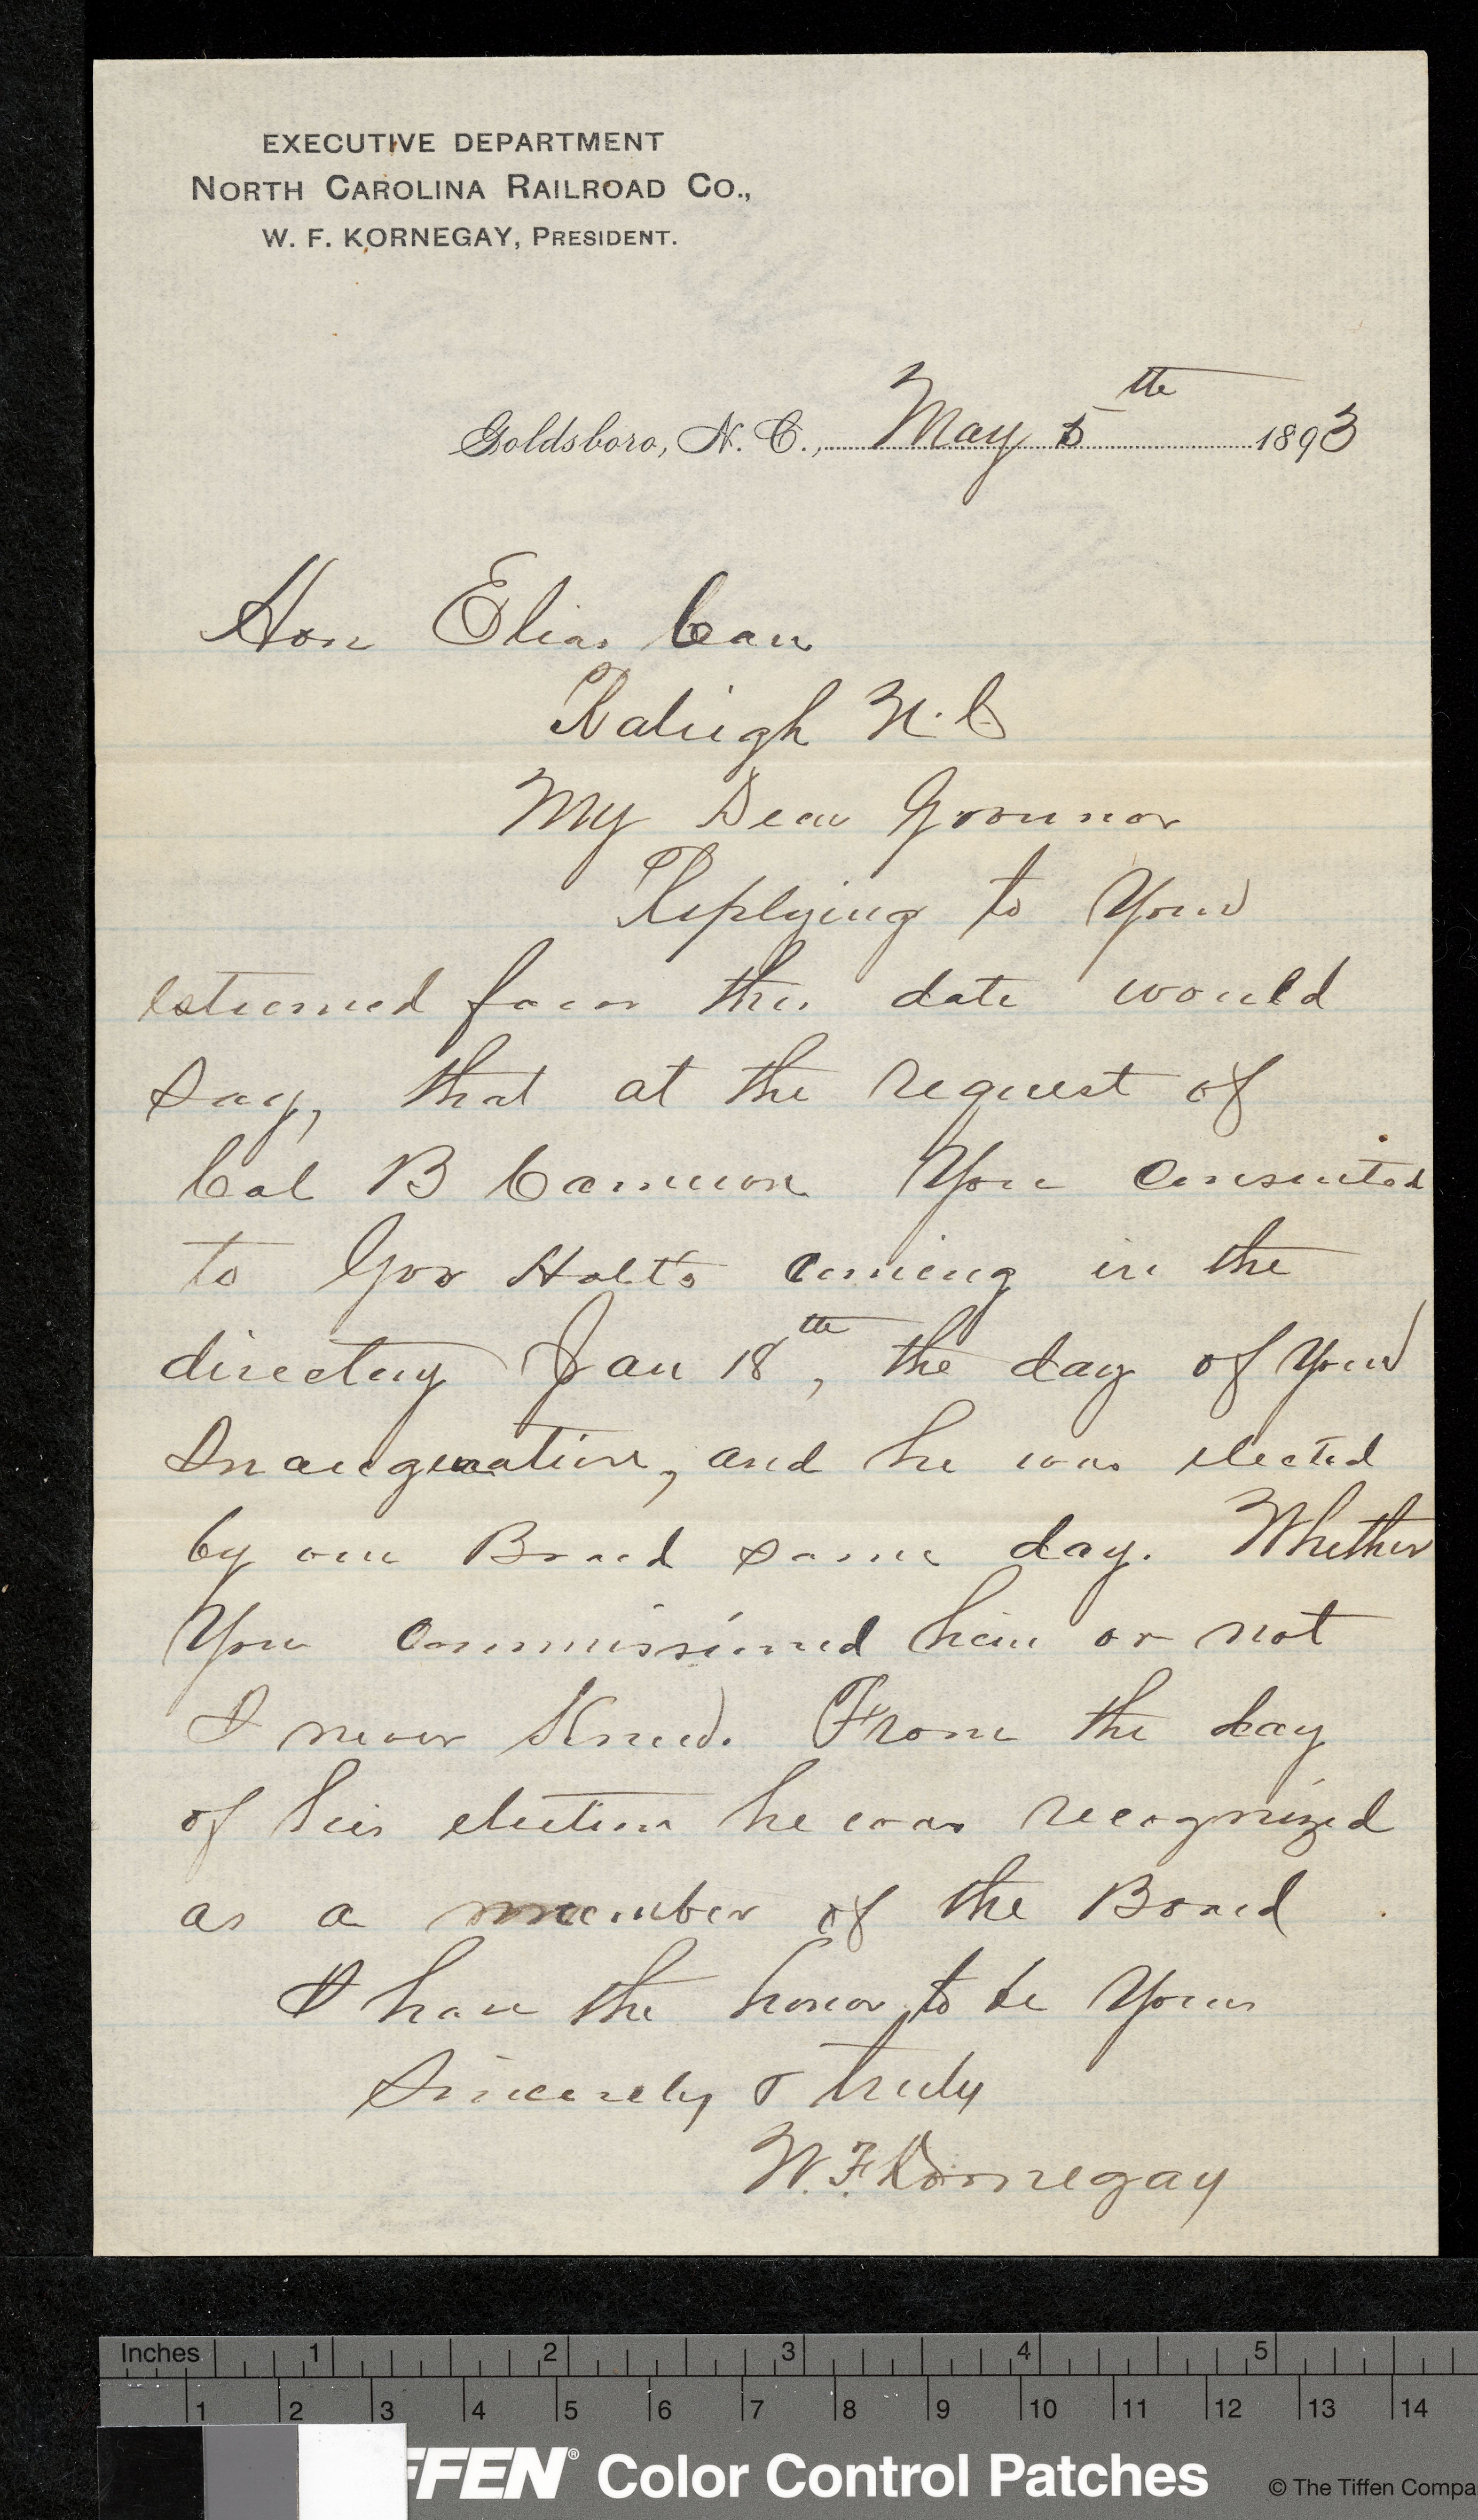 EXECUTIVE DEPARTMENT
NORTH CAROLINA RAILROAD CO.,
W. F. KORNEGAY, PRESIDENT.
Goldsboro, N. C., May 5th 1893
Hon Elias Carr
Raleigh N.C
My Dear Governor
Replying to Your
esteemed favor this date would
say, that at the request of
Col B Cameron You consented
to Gov Holt's coming in the
directory Jan 18th, the day of Your
Inauguration, and he was elected
by our Board same day. Whether
You commissioned him or not
I never Knew. From the day
of his election he was recognized
as a member of the Board
I have the honor to be Yours
Sincerely & truly
W. F. Kornegay
Inches 1 2 3 4 5
1 2 3 4 5 6 7 8 9 10 11 12 13 14
FFEN® Color Control Patches © The Tiffen Compa